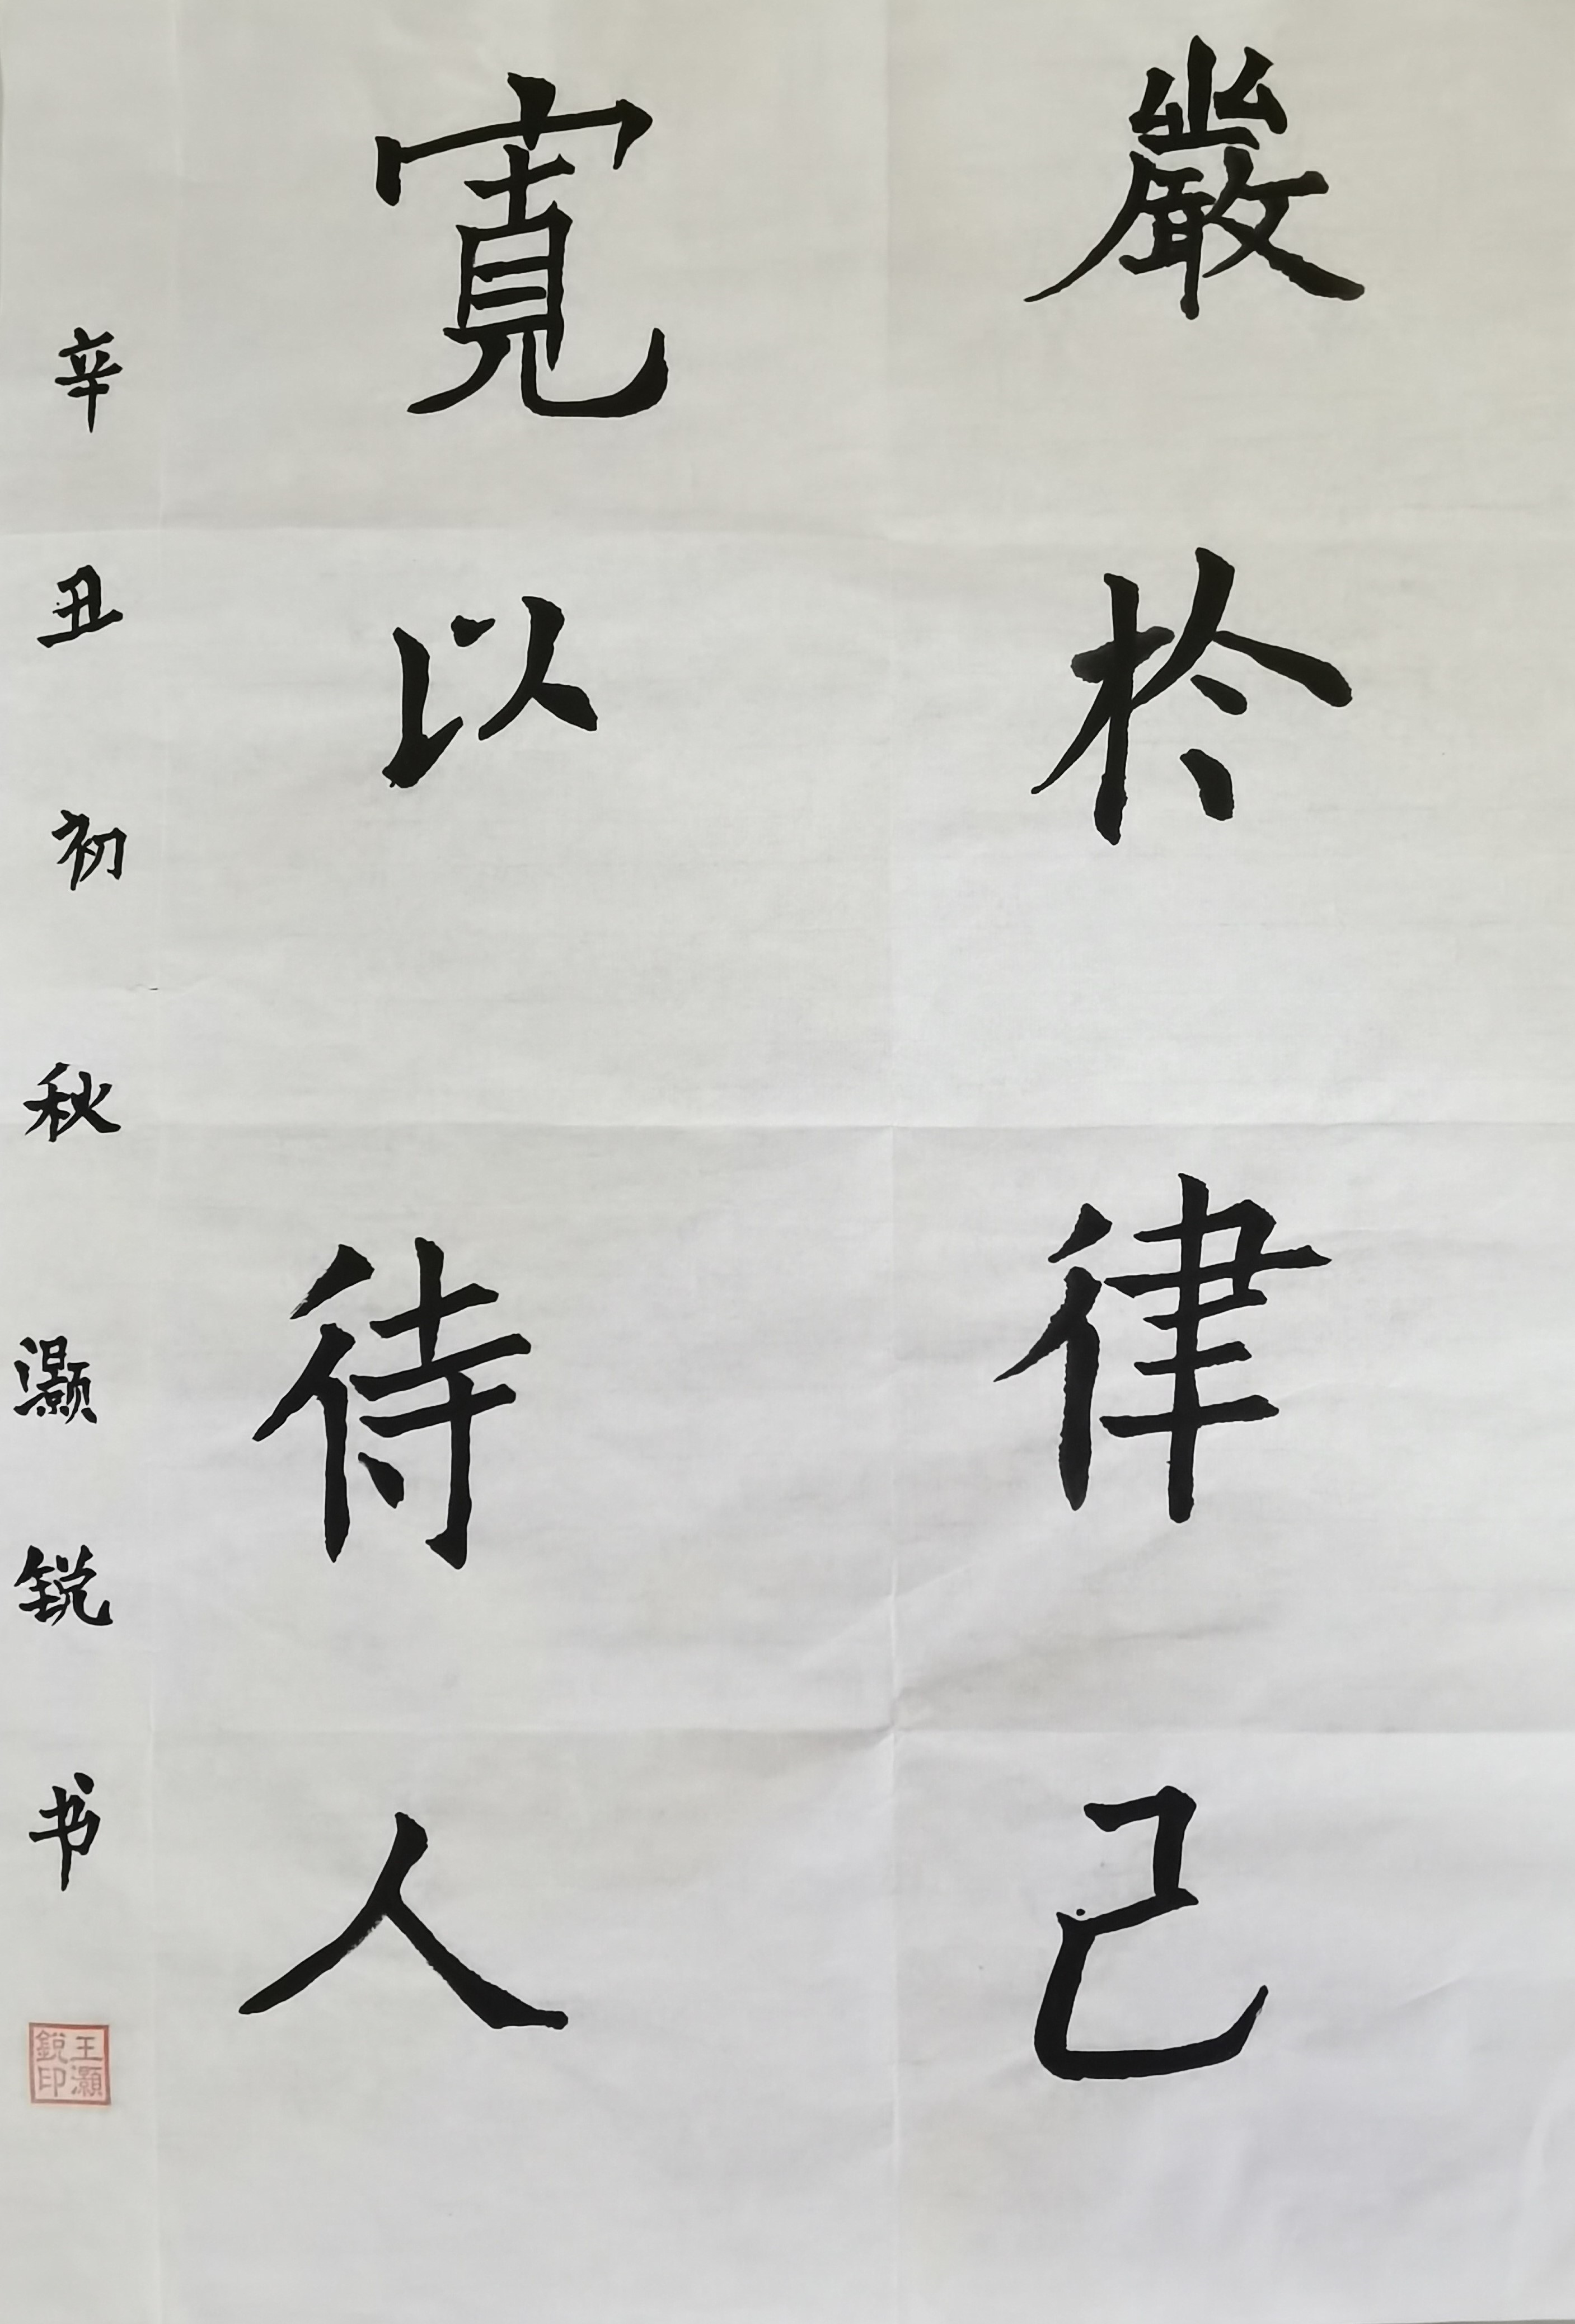 嚴於律己
寬以待人
辛丑初秋灏锐书
王灝
銳印